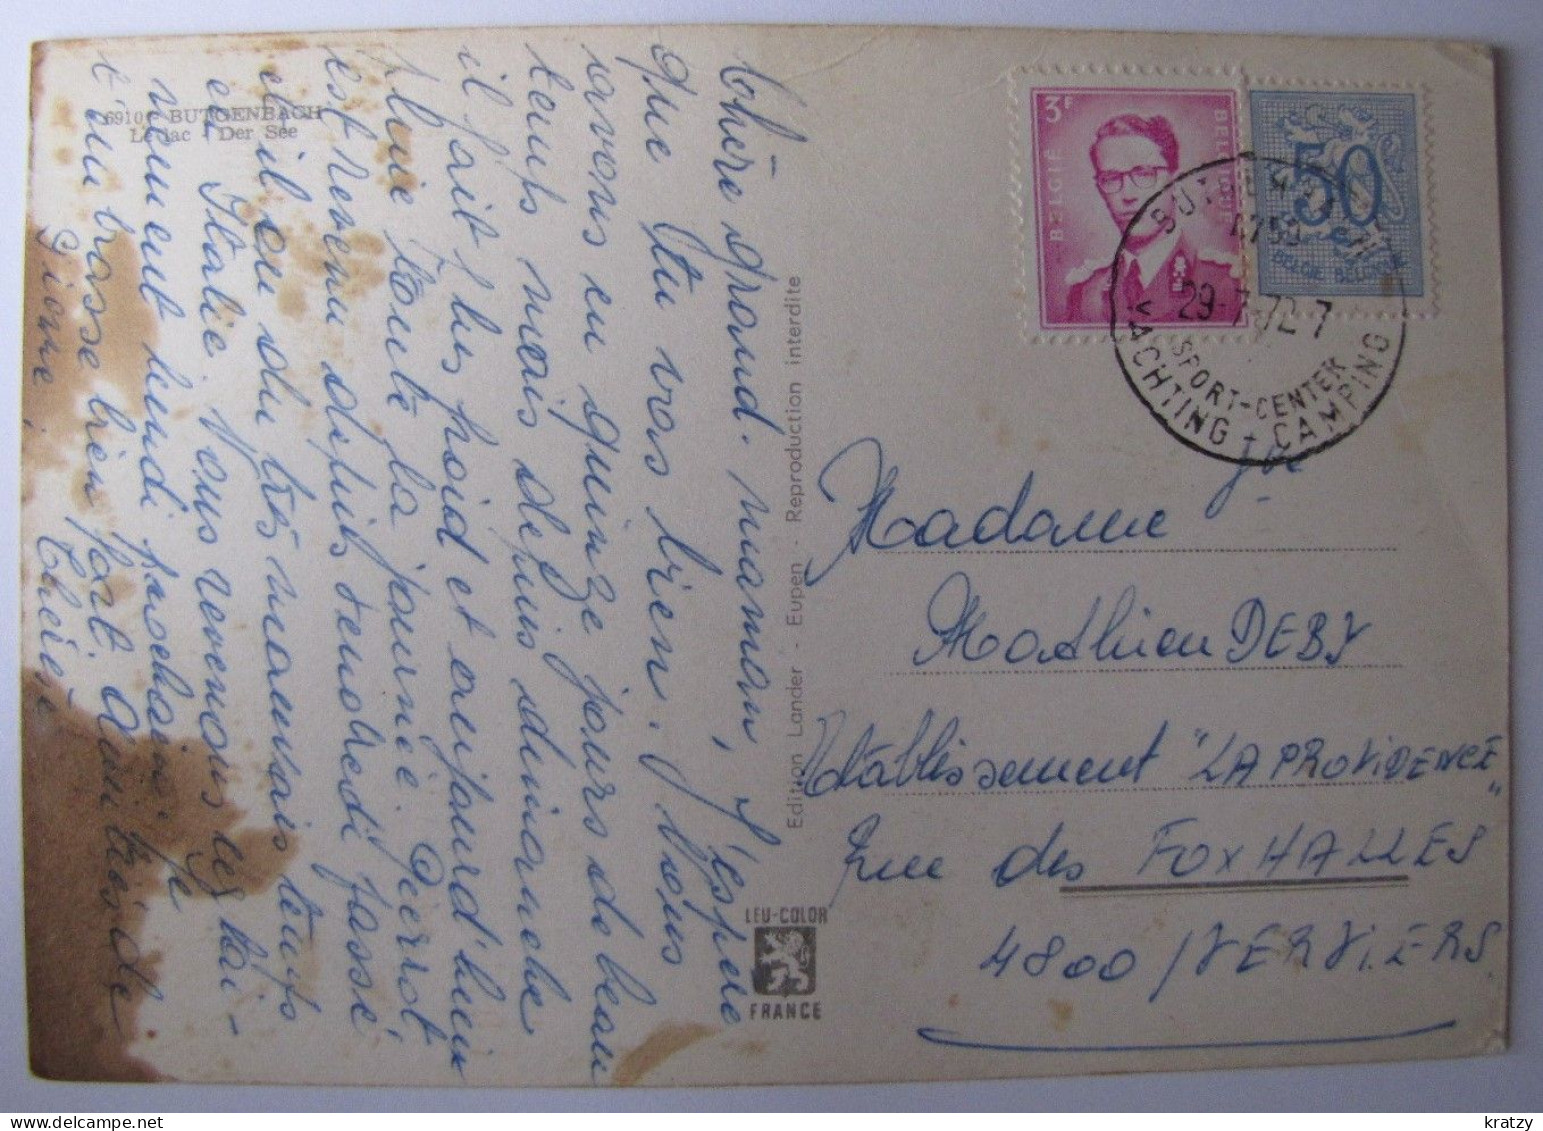 6910 BUTGENBACH
Le lac - Der See
Chère grand. maman, J'espère
que tu vas bien. Nous
avons eu quinze jours de beau
temps mais depuis dimanche
il fait plus froid et aujourd'hui
pluie toute la journée. Pierrot
est revenu depuis vendredi passé
et il eu du très mauvais temps
en Italie. Nous revenons les
vement lundi prochain. Je
t'embrasse bien fort. Gros bisous de
Pierre,
Thérèse
Edition Lander - Eupen - Reproduction interdite
LEU-COLOR
FRANCE
3F
BELGIË BELGIQUE
50
BELGIE BELGIQUE
29-7-72-7
SPORT-CENTER
YACHTING + CAMPING
Madame
Mathieu DEBY
Etablissement "LA PROVIDENCE"
Rue des FOXHALLES
4800 / VERVIERS
kratzy